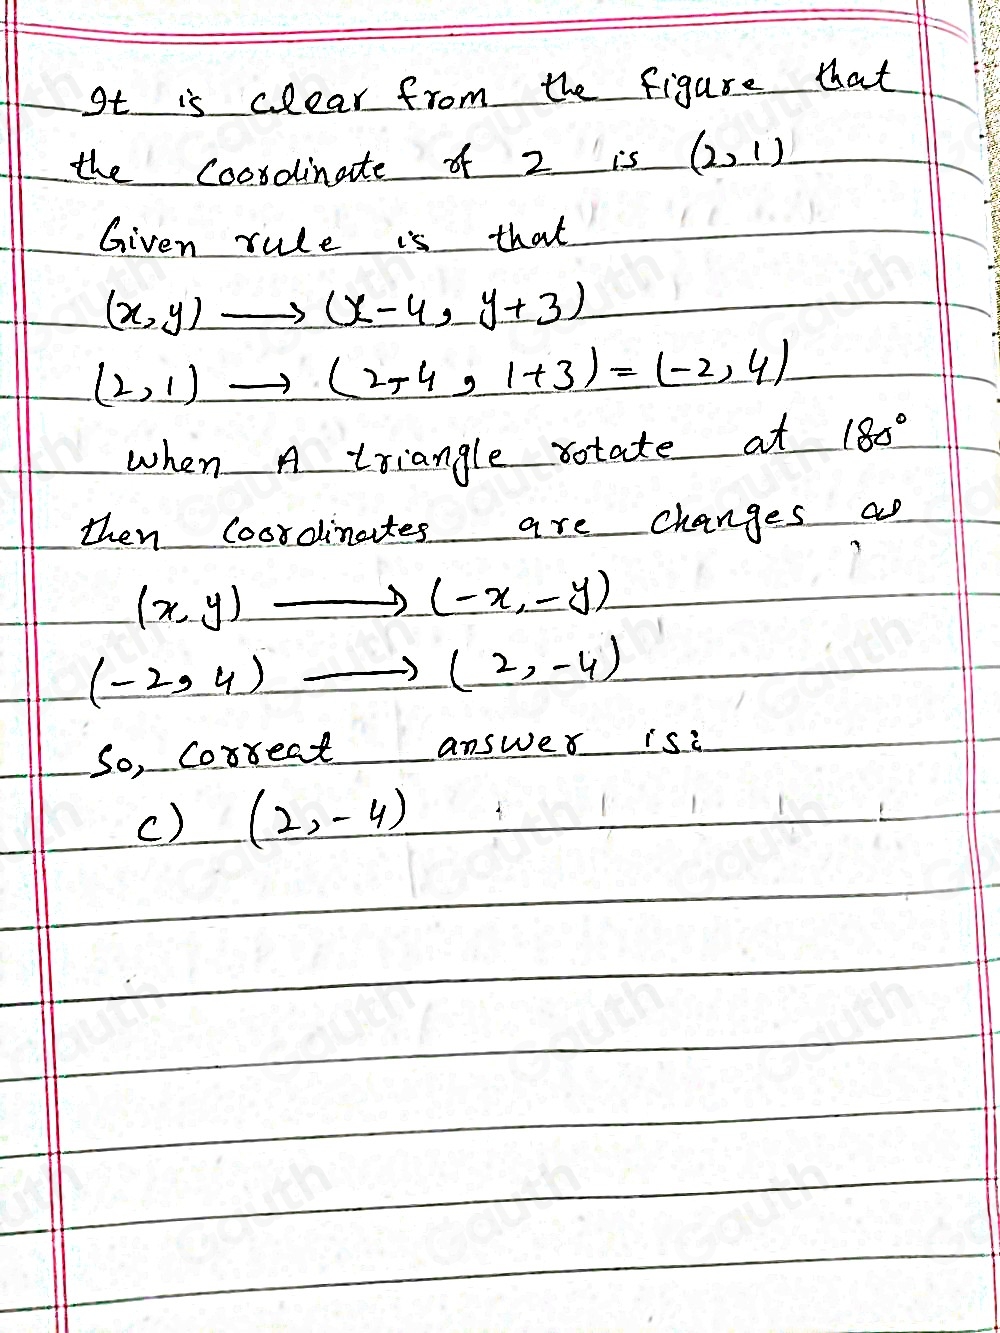 It is clear from the figure that
the coordinate of 2 is (2,1)
Given rule is that
(x,y) ⟶ (x-4, y+3)
(2,1) ⟶ (2-4, 1+3) = (-2,4)
when A triangle rotate at 180°
then coordinates are changes as
(x,y) ⟶ (-x,-y)
(-2,4) ⟶ (2,-4)
So, correat answer is:
c) (2,-4)